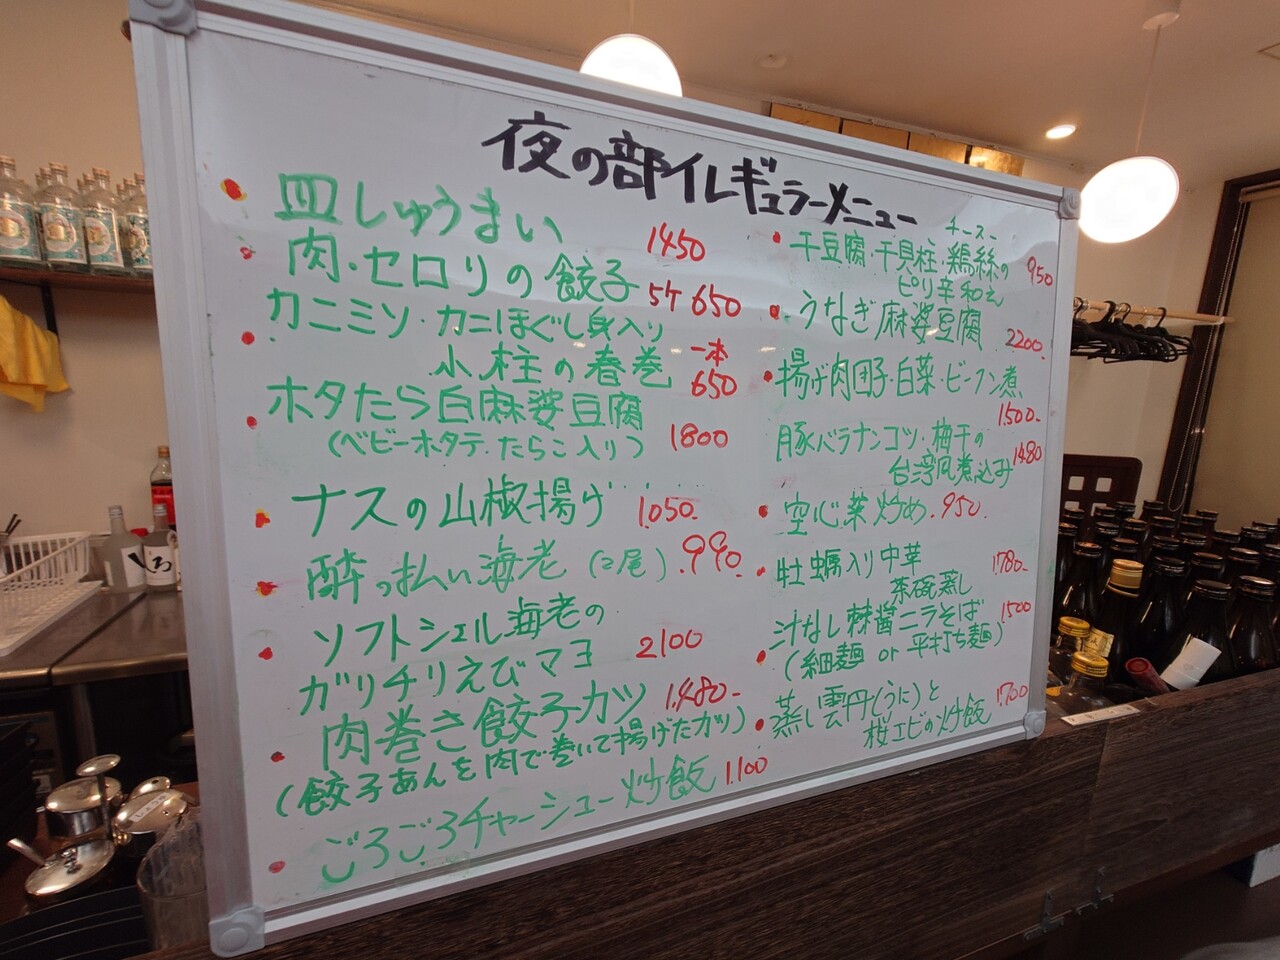 夜の部イレギュラーメニュー
皿しゅうまい 1450
肉・セロリの餃子 5ケ 650
カニミソ・カニほぐし身入り
小柱の春巻 一本 650
ホタたら白麻婆豆腐
(ベビーホタテ・たらこ入り) 1800
ナスの山椒揚げ 1,050.
酔っ払い海老 (2尾) .990.
ソフトシェル海老の
ガリチリえびマヨ 2100
肉巻き餃子カツ 1,480-
(餃子あんを肉で巻いて揚げたカツ)
ごろごろチャーシュー炒飯 1,100
チースー
干豆腐・干貝柱・鶏絲の
ピリ辛和え 950
うなぎ麻婆豆腐 2200.
揚げ肉団子・白菜・ビーフン煮
1,500-
豚バラナンコツ・梅干の
台湾風煮込み 1480
空心菜炒め .950.
牡蠣入り中華
茶碗蒸し 1,780-
汁なし棘醤ニラそば 1500
(細麺 or 平打ち麺)
蒸し雲丹(うに)と
桜エビの炒飯 1,700